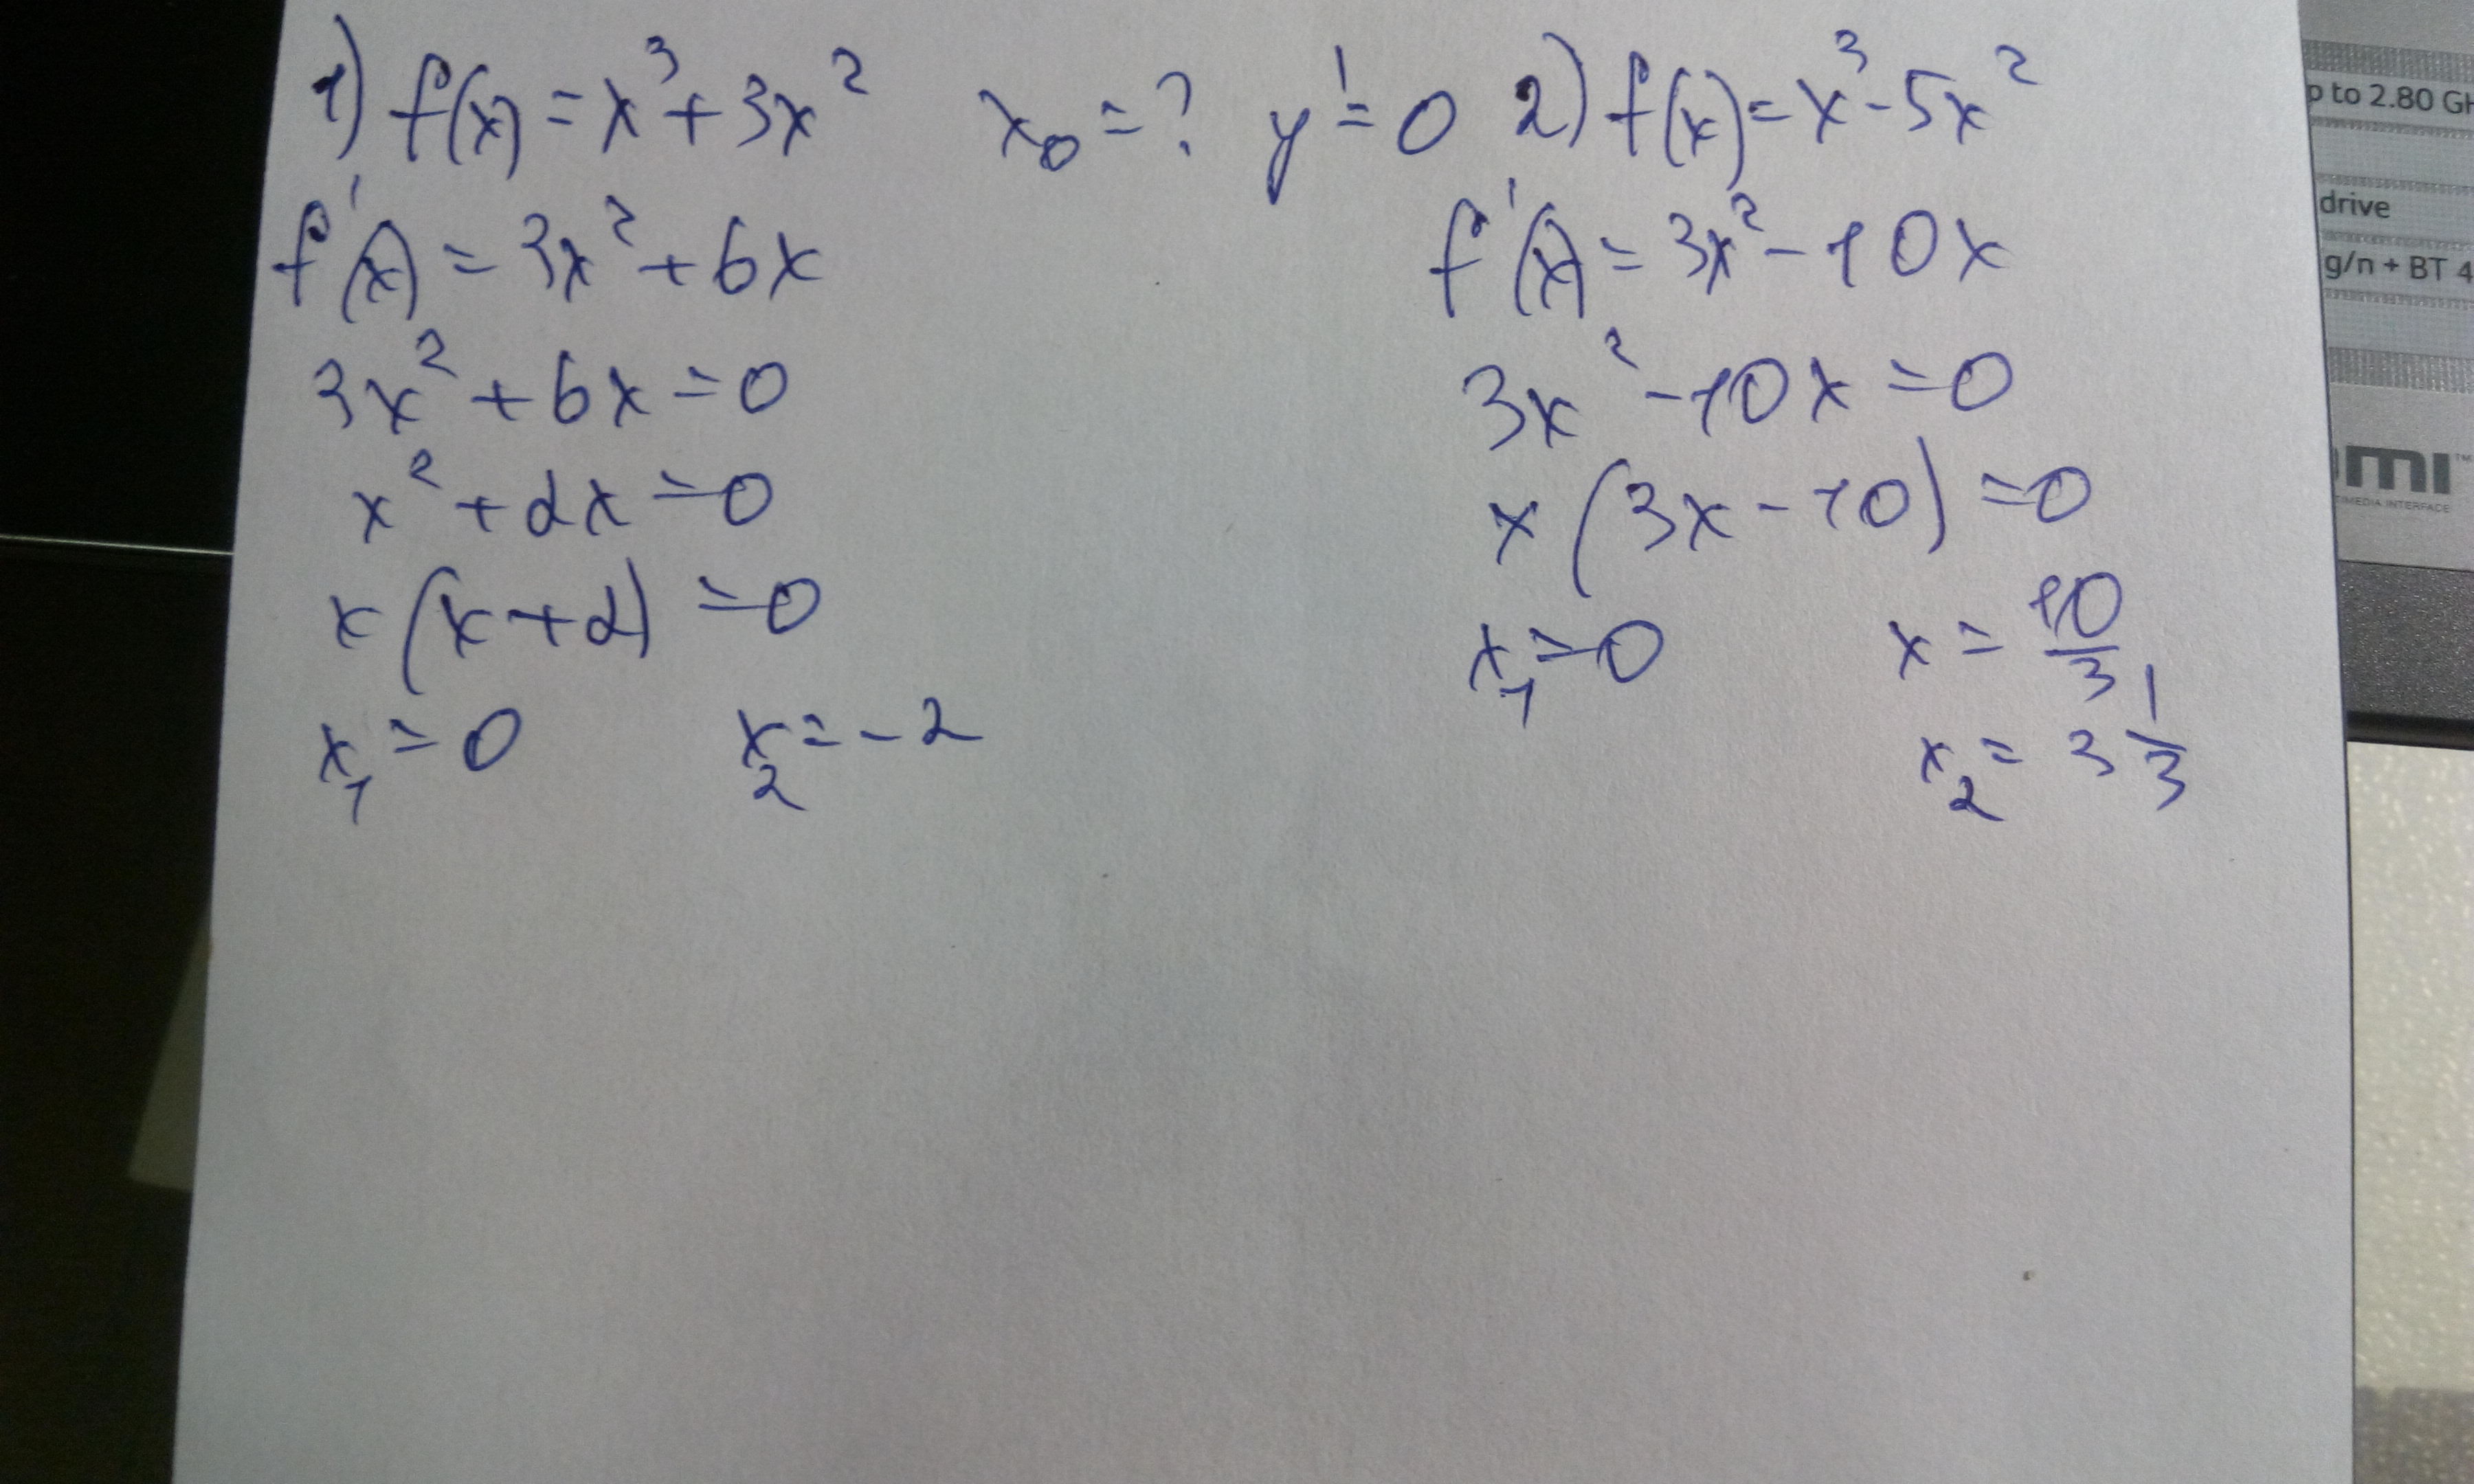 1) f(x) = x³ + 3x² x₀ = ? y' = 0
f'(x) = 3x² + 6x
3x² + 6x = 0
x² + 2x = 0
x (x + 2) = 0
x₁ = 0 x₂ = -2
2) f(x) = x³ - 5x²
f'(x) = 3x² - 10x
3x² - 10x = 0
x (3x - 10) = 0
x₁ = 0 x = 10/3
x₂ = 3 1/3
p to 2.80 GH
drive
g/n + BT 4
mı™
TIMEDIA INTERFACE